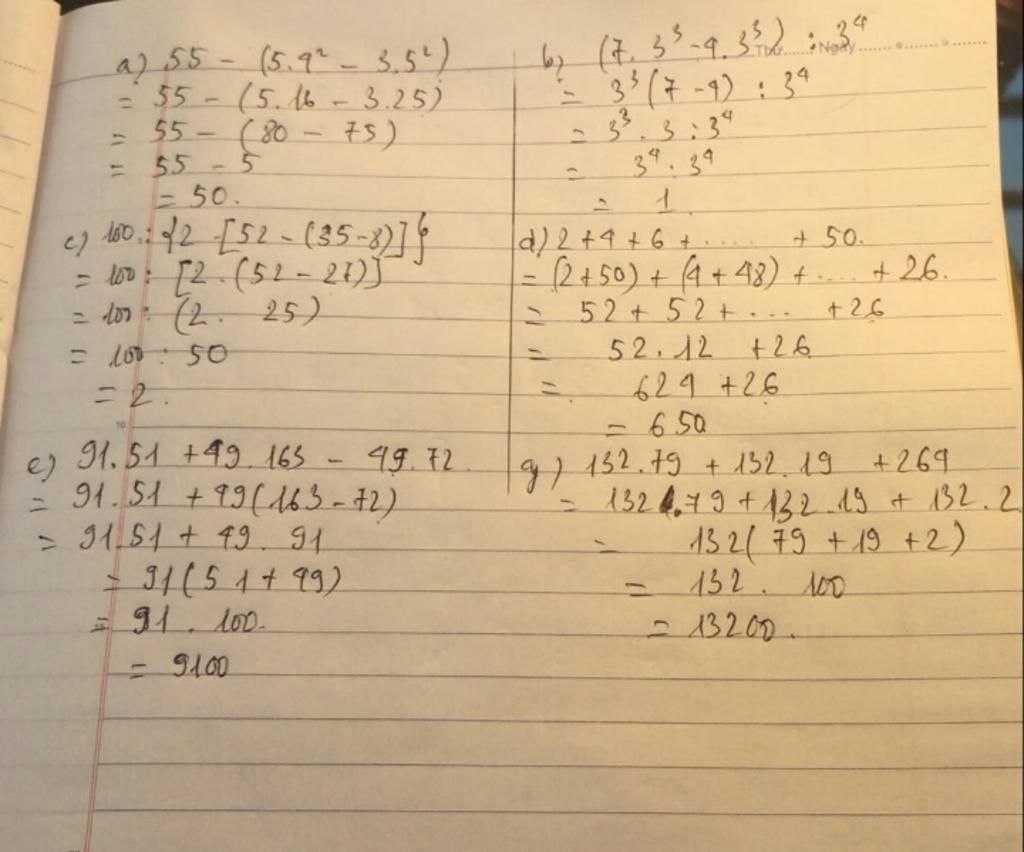 a) 55 - (5.4² - 3.5²)
= 55 - (5.16 - 3.25)
= 55 - (80 - 75)
= 55 - 5
= 50.
b) (7.3³ - 4.3³) : 3⁴
Thứ Ngày
= 3³(7-4) : 3⁴
= 3³.3 : 3⁴
= 3⁴ : 3⁴
= 1
c) 100 : {2.[52 - (35-8)]}
= 100 : [2.(52 - 27)]
= 100 : (2. 25)
= 100 : 50
= 2.
d) 2+4+6+...... +50.
= (2+50) + (4+48) + .... +26.
= 52 + 52 + ... +26
= 52.12 +26
= 624 +26
= 650
10
e) 91.51 +49.163 - 49.72
= 91.51 + 49(163-72)
= 91.51 + 49. 91
= 91(51+49)
= 91. 100.
= 9100
g) 132.79 + 132.19 +264
= 132.79 + 132.19 + 132.2
= 132(79 +19 +2)
= 132. 100
= 13200.